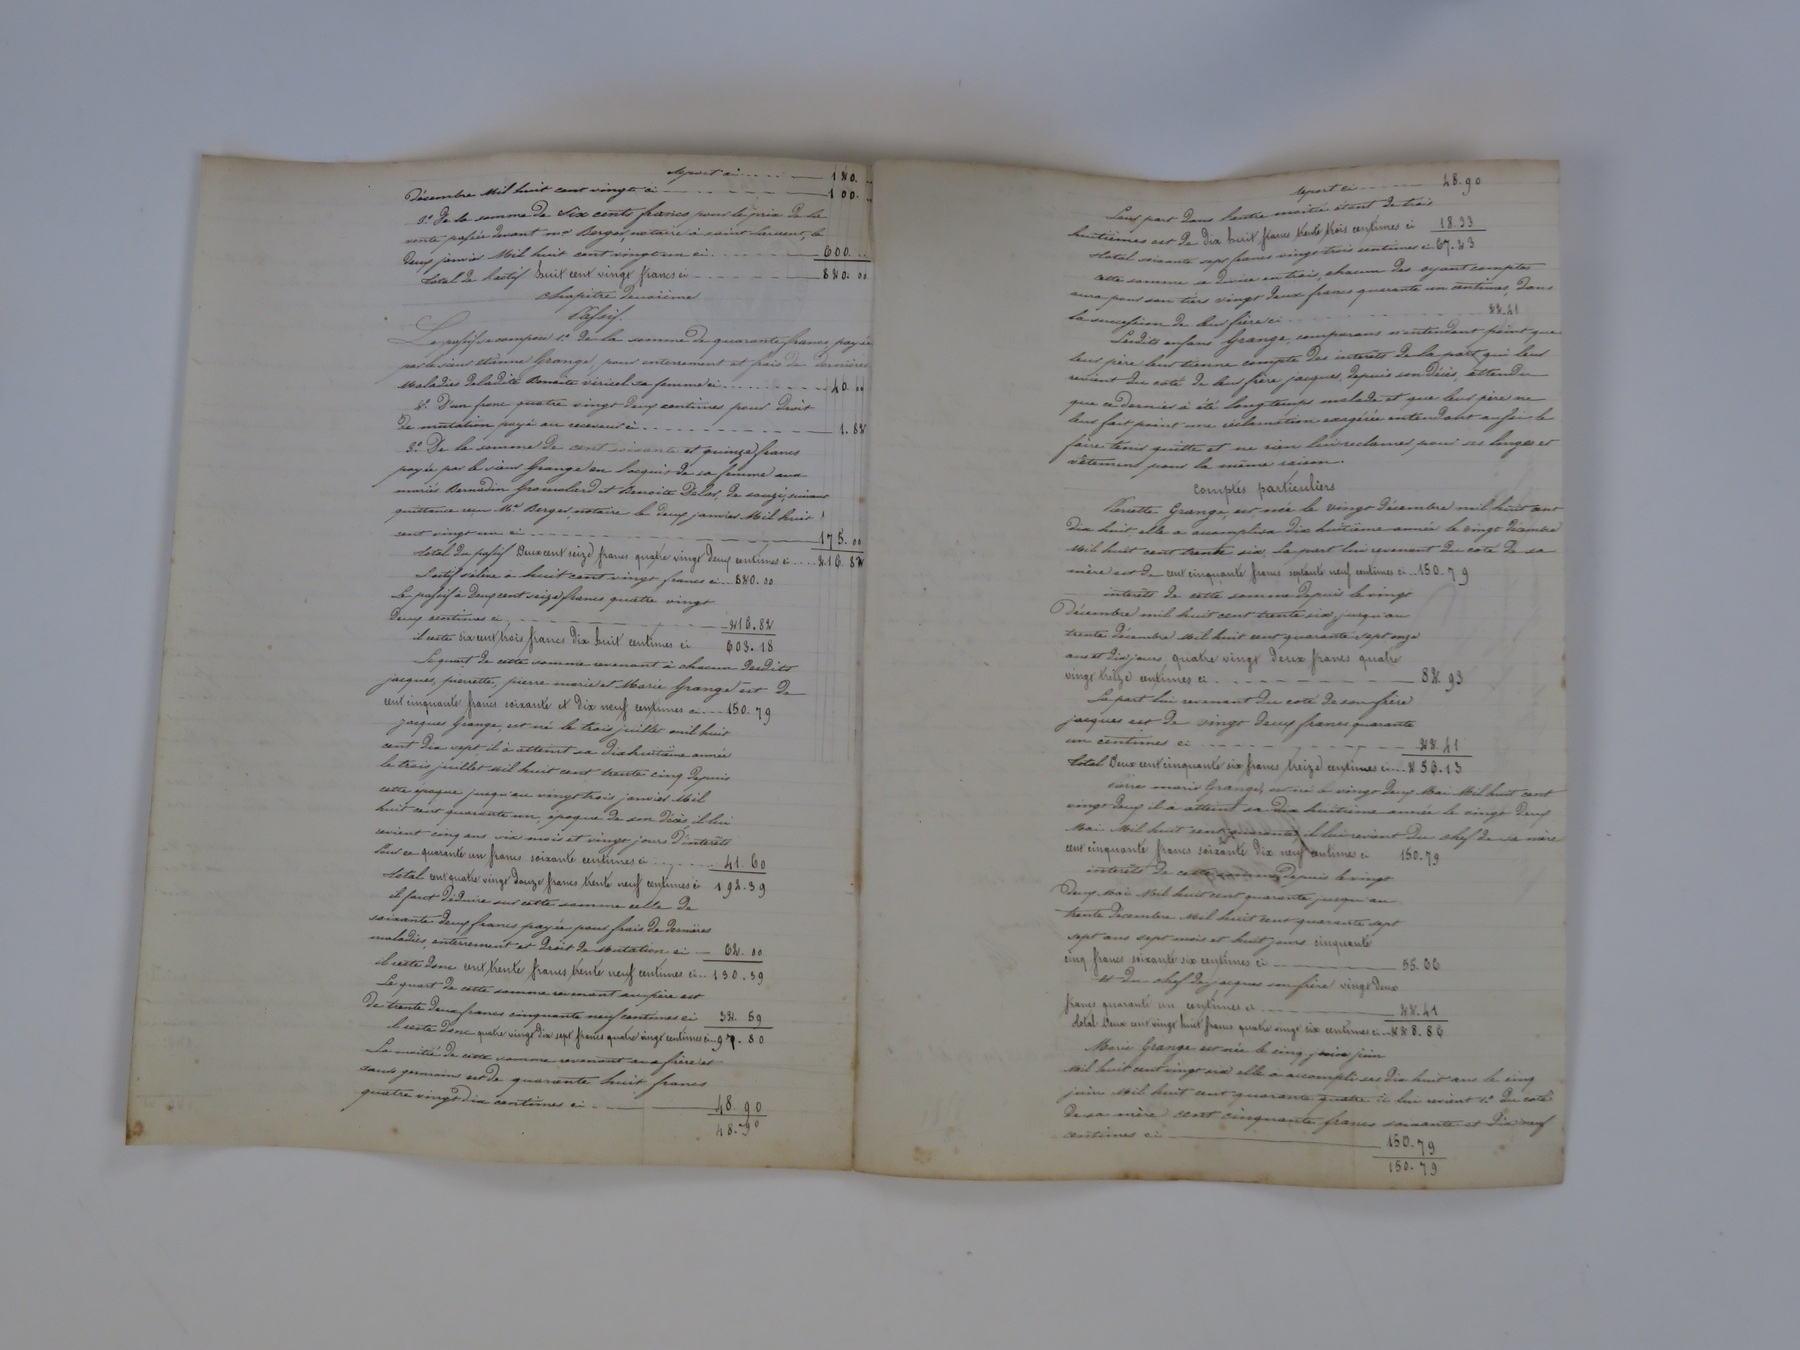 Report ci .... 120. ..
Décembre Mil huit cent vingt ci 100. ..
3.° De la somme de Six cents francs pour le prix de la
vente passée devant me. Berger, notaire à saint Laurent, le
deux janvier Mil huit cent vingt un ci 600. ..
total de l'actif huit cent vingt francs ci 820. 00
Chapitre deuxième
Passif.
Le passif se compose 1.° de la somme de quarante francs payée
par le sieur etienne Grange, pour enterrement et frais de dernières
Maladies de ladite Benoite Véricel sa femme ci 40. 00
2.° D'un franc quatre vingt deux centimes pour droit
de mutation payé au receveur ci 1. 82
3.° De la somme de cent soixante et quinze francs
payée par le sieur Grange en l'acquit de sa femme aux
mariés Bernadin et Benoite de souzi, suivant
quittance reçu Me. Berger, notaire le deux janvier Mil huit
cent vingt un ci 175. 00
total du passif Deux cent seize francs quatre vingt deux centimes ci .... 216. 82
L'actif s'élève à huit cent vingt francs ci .. 820. 00
Le passif à Deux cent seize francs quatre vingt
deux centimes ci 216. 82
il reste six cent trois francs dix huit centimes ci 603. 18
Le quart de cette somme revenant à chacun desdits
jacques, pierrette, pierre marie et Marie Grange est de
cent cinquante francs soixante et dix neuf centimes ci .... 150. 79
jacques Grange, est né le trois juillet mil huit
cent dix sept il à atteint sa dix huitième année
le trois juillet Mil huit cent trente cinq depuis
cette époque jusqu'au vingt trois janvier Mil
huit cent quarante un, époque de son décès, il lui
revient cinq ans six mois et vingt jours d'intérêts
Pour ce quarante un francs soixante centimes ci 41. 60
total cent quatre vingt douze francs trente neuf centimes ci 192. 39
il faut déduire sur cette somme celle de
soixante deux francs payée pour frais de dernières
maladies, enterrement et droit de mutation ci 62. 00
il reste donc cent trente francs trente neuf centimes ci .. 130. 39
Le quart de cette somme revenant au père est
de trente deux francs cinquante neuf centimes ci 32. 59
il reste donc quatre vingt dix sept francs quatre vingt centimes ci .. 97. 80
La moitié de cette somme revenant aux frère et
sœurs germains est de quarante huit francs
quatre vingt dix centimes ci 48. 90
48. 90
Report ci 48. 90
Leur part dans l'autre moitié étant de trois
huitièmes est de dix huit francs trente trois centimes ci 18. 33
total soixante sept francs vingt trois centimes ci 67. 23
cette somme se divise en trois, chacun des oyant comptes
aura pour son tiers vingt deux francs quarante un centimes, dans
la succession de leur frère ci 22. 41
Lesdits enfans Grange, comparans n'entendant point que
leur père leur tienne compte des intérêts de la part qui leur
revient du coté de leur frère jacques, depuis son décès, attendu
que ce dernier à été longtemps malade et que leur père ne
leur fait point une réclamation exagérée entendant aussi le
faire tenir quitte et ne rien lui réclamer pour ses linges et
vêtemens pour la même raison.
Comptes particuliers
Pierrette Grange, est née le vingt décembre mil huit cent
dix huit, elle a accompli sa dix huitième année le vingt décembre
Mil huit cent trente six, la part lui revenant du coté de sa
mère est de cent cinquante francs septante neuf centimes ci .. 150. 79
intérêts de cette somme depuis le vingt
décembre mil huit cent trente six, jusqu'au
trente décembre Mil huit cent quarante sept onze
ans et dix jours, quatre vingt deux francs quatre
vingt treize centimes ci 82. 93
La part lui revenant du coté de son frère
jacques est de vingt deux francs quarante
un centimes ci 22. 41
total Deux cent cinquante six francs treize centimes ci .. 256. 13
Pierre marie Grange, est né le vingt deux Mai Mil huit cent
vingt deux il a atteint sa dix huitième année le vingt deux
Mai Mil huit cent quarante, il lui revient du chef de sa mère
cent cinquante francs soixante dix neuf centimes ci 150. 79
intérêts de cette somme depuis le vingt
deux Mai Mil huit cent quarante jusqu'au
trente décembre Mil huit cent quarante sept
sept ans sept mois et huit jours cinquante
cinq francs soixante six centimes ci 55. 66
et du chef de jacques son frère vingt deux
francs quarante un centimes ci 22. 41
total Deux cent vingt huit francs quatre vingt six centimes ci .. 228. 86
Marie Grange est née le cinq juin
Mil huit cent vingt six elle a accompli ses dix huit ans le cinq
juin Mil huit cent quarante quatre il lui revient 1.° du coté
de sa mère cent cinquante francs soixante et dix neuf
centimes ci 150. 79
150. 79